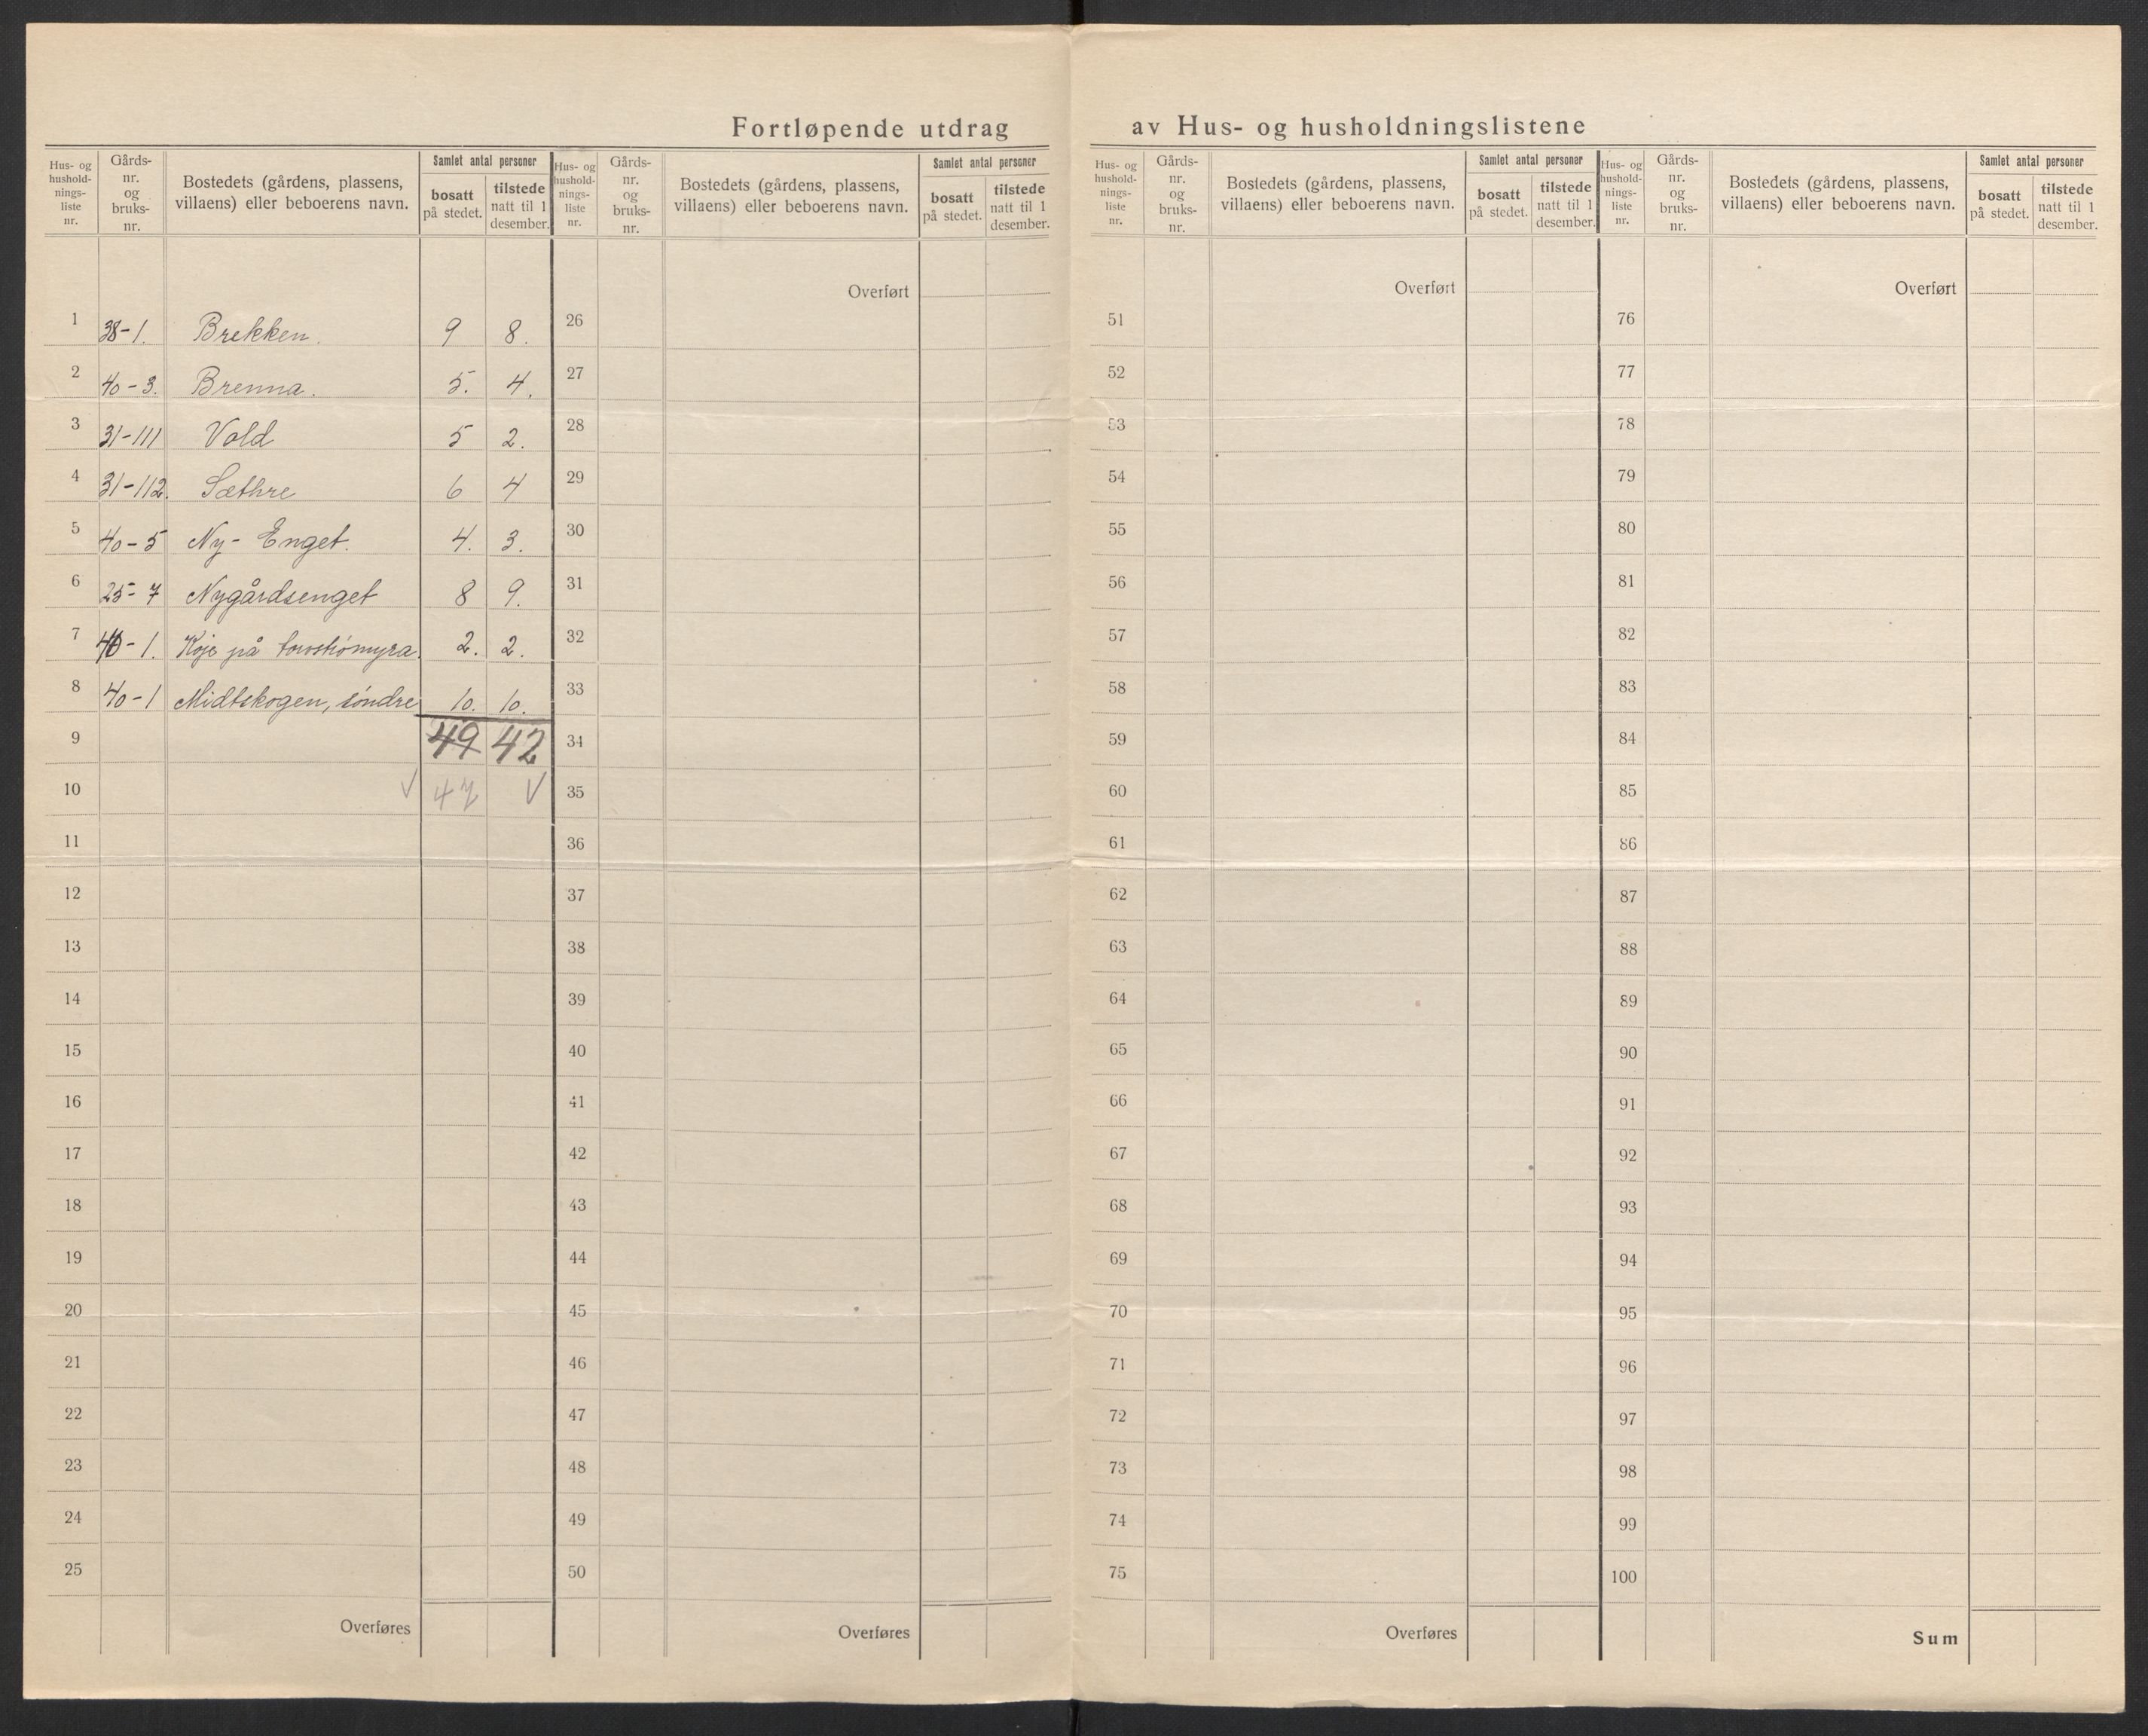 Fortløpende utdrag av Hus- og husholdningslistene
Hus- og hushold-nings-liste nr. Gårds-nr. og bruks-nr. Bostedets (gårdens, plassens, villaens) eller beboerens navn. Samlet antal personer bosatt på stedet. tilstede natt til 1 desember.
1 38-1. Brekken. 9 8.
2 40-3. Brenna. 5. 4.
3 31-111 Vold 5 2.
4 31-112. Sæthre 6 4
5 40-5 Ny-Enget. 4. 3.
6 25-7 Nygårdsenget 8 9.
7 40-1. Koje på 2. 2.
8 40-1 Midtskogen, søndre 10. 10.
9 49 42
10 √ 47 √
11
12
13
14
15
16
17
18
19
20
21
22
23
24
25
Overføres
Hus- og hushold-nings-liste nr. Gårds-nr. og bruks-nr. Bostedets (gårdens, plassens, villaens) eller beboerens navn. Samlet antal personer bosatt på stedet. tilstede natt til 1 desember.
Overført
26
27
28
29
30
31
32
33
34
35
36
37
38
39
40
41
42
43
44
45
46
47
48
49
50
Overføres
Hus- og hushold-nings-liste nr. Gårds-nr. og bruks-nr. Bostedets (gårdens, plassens, villaens) eller beboerens navn. Samlet antal personer bosatt på stedet. tilstede natt til 1 desember.
Overført
51
52
53
54
55
56
57
58
59
60
61
62
63
64
65
66
67
68
69
70
71
72
73
74
75
Overføres
Hus- og hushold-nings-liste nr. Gårds-nr. og bruks-nr. Bostedets (gårdens, plassens, villaens) eller beboerens navn. Samlet antal personer bosatt på stedet. tilstede natt til 1 desember.
Overført
76
77
78
79
80
81
82
83
84
85
86
87
88
89
90
91
92
93
94
95
96
97
98
99
100
Sum